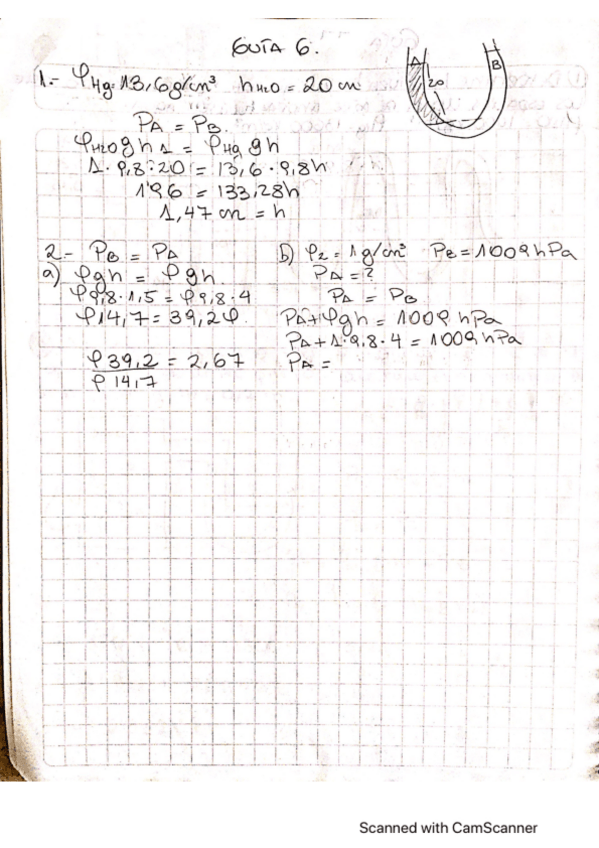 GUÍA 6.
1.- φHg=13,6g/cm³ hH2O = 20 cm
A B
20
PA = PB.
φH2O g h 1 = φHg gh
1. 9,8.20 = 13,6 . 9,8h
196 = 133,28h
1,47 cm = h
2.- PB = PA
a) φgh = φgh.
φ9,8.1,5 = φ9,8.4
φ14,7 = 39,2φ.
φ39,2 = 2,67
φ14,7
b) φ2 = 1g/cm³ PB = 1009 hPa
PA = ?
PA = PB
PA + φgh = 1009 hPa
PA + 1.9,8.4 = 1009 hPa
PA =
Scanned with CamScanner